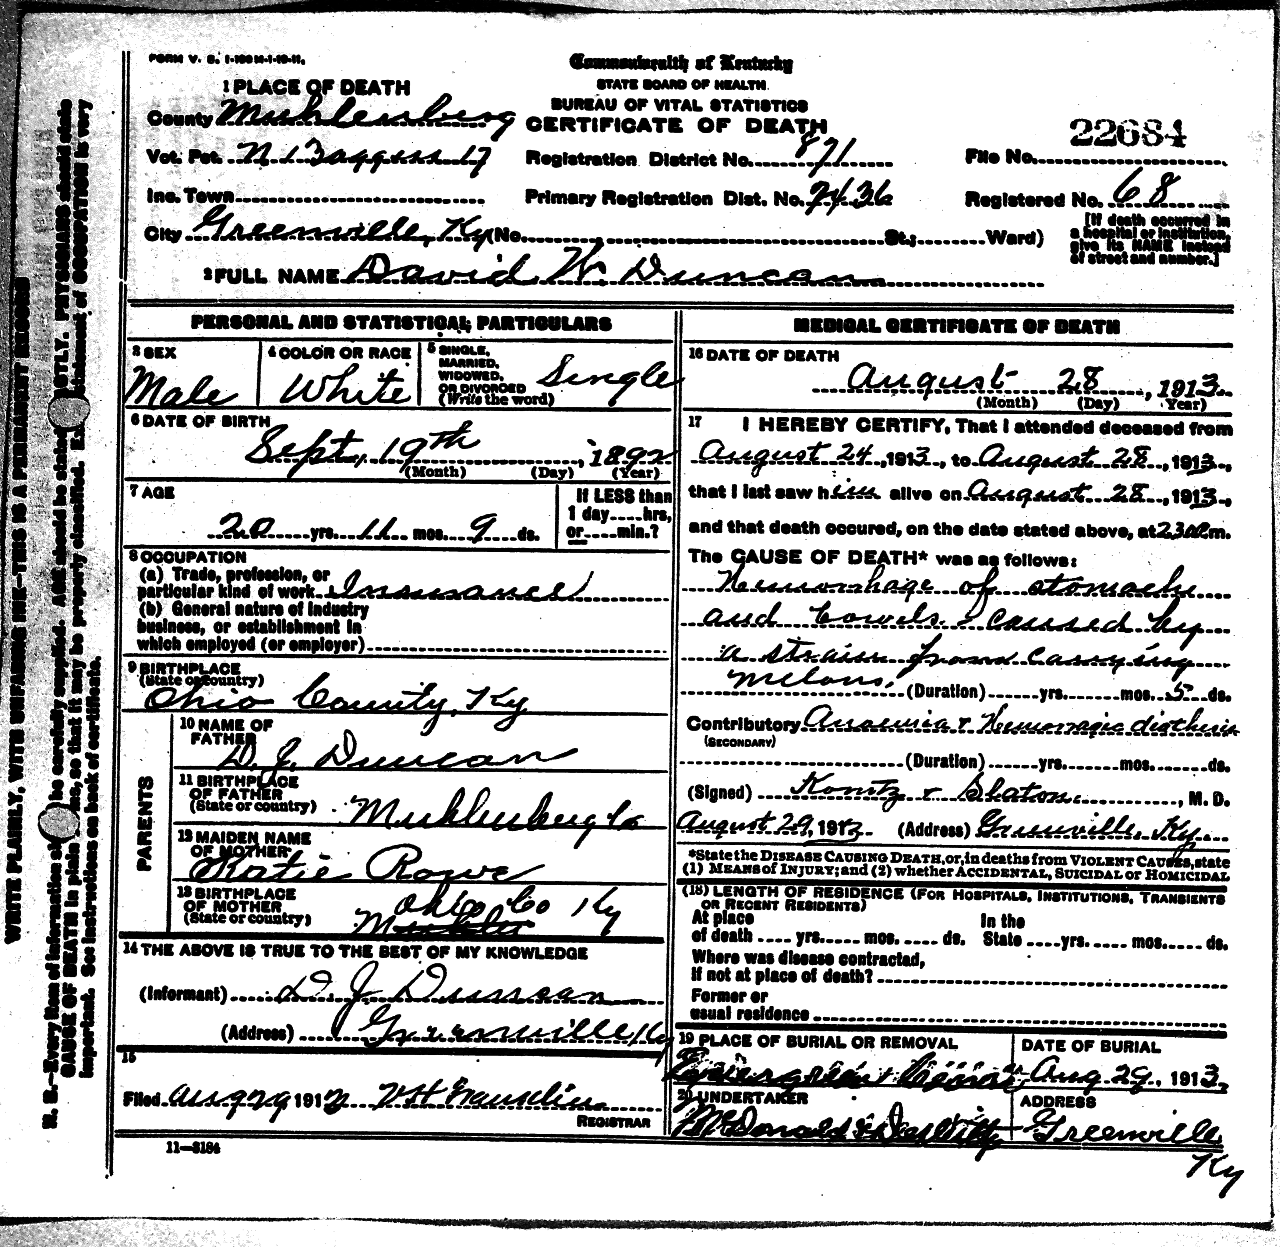 FORM V. S. 1-150M-1-10-11.
Commonwealth of Kentucky
STATE BOARD OF HEALTH
BUREAU OF VITAL STATISTICS
CERTIFICATE OF DEATH
1 PLACE OF DEATH
County Muhlenberg
Vot. Pct. N. 17
Inc. Town
City Greenville, Ky (No. St.; Ward)
Registration District No. 871
Primary Registration Dist. No. 2436
File No. 22684
Registered No. 68
[If death occurred in
a hospital or institution,
give its NAME instead
of street and number.]
2 FULL NAME David W. Duncan
PERSONAL AND STATISTICAL PARTICULARS
3 SEX
Male
4 COLOR OR RACE
White
5 SINGLE,
MARRIED,
WIDOWED,
OR DIVORCED
(Write the word)
Single
6 DATE OF BIRTH
Sept, 19th, 1892
(Month) (Day) (Year)
7 AGE
20 yrs. 11 mos. 9 ds.
If LESS than
1 day hrs,
or min.?
8 OCCUPATION
(a) Trade, profession, or
particular kind of work Insurance
(b) General nature of industry
business, or establishment in
which employed (or employer)
9 BIRTHPLACE
(State or country)
Ohio County, Ky
PARENTS
10 NAME OF
FATHER
D. J. Duncan
11 BIRTHPLACE
OF FATHER
(State or country) Muhlenberg Co
12 MAIDEN NAME
OF MOTHER
Katie Rowe
13 BIRTHPLACE
OF MOTHER
(State or country)
Ohio Co Ky
14 THE ABOVE IS TRUE TO THE BEST OF MY KNOWLEDGE
(Informant) D J Duncan
(Address) Greenville Ky
15
Filed Aug 29 1913
REGISTRAR
11—3184
MEDICAL CERTIFICATE OF DEATH
16 DATE OF DEATH
August 28, 1913
(Month) (Day) (Year)
17 I HEREBY CERTIFY, That I attended deceased from
August 24, 1913, to August 28, 1913,
that I last saw him alive on August 28, 1913,
and that death occured, on the date stated above, at 230 m.
The CAUSE OF DEATH* was as follows:
Hemorrhage of stomache
and bowels - caused by
a strain from carrying
melons. (Duration) yrs. mos. 5 ds.
Contributory Anaemia & Hemorragic
(SECONDARY)
(Duration) yrs. mos. ds.
(Signed) & Slaton., M. D.
August 29, 1913 (Address) Greenville Ky.
*State the DISEASE CAUSING DEATH, or, in deaths from VIOLENT CAUSES, state
(1) MEANS of INJURY; and (2) whether ACCIDENTAL, SUICIDAL or HOMICIDAL
(18) LENGTH OF RESIDENCE (FOR HOSPITALS, INSTITUTIONS, TRANSIENTS
OR RECENT RESIDENTS)
At place
of death yrs. mos. ds.
In the
State yrs. mos. ds.
Where was disease contracted,
if not at place of death?
Former or
usual residence
19 PLACE OF BURIAL OR REMOVAL
Evergreen
DATE OF BURIAL
Aug 29, 1913
20 UNDERTAKER
McDonald &
ADDRESS
Greenville
Ky
WRITE PLAINLY, WITH UNFADING INK—THIS IS A PERMANENT RECORD
N. B.—Every item of information be carefully supplied. AGE should be stated EXACTLY. PHYSICIANS should state
CAUSE OF DEATH in plain so that it may be properly classified. statement of OCCUPATION is very
important. See instructions on back of certificate.